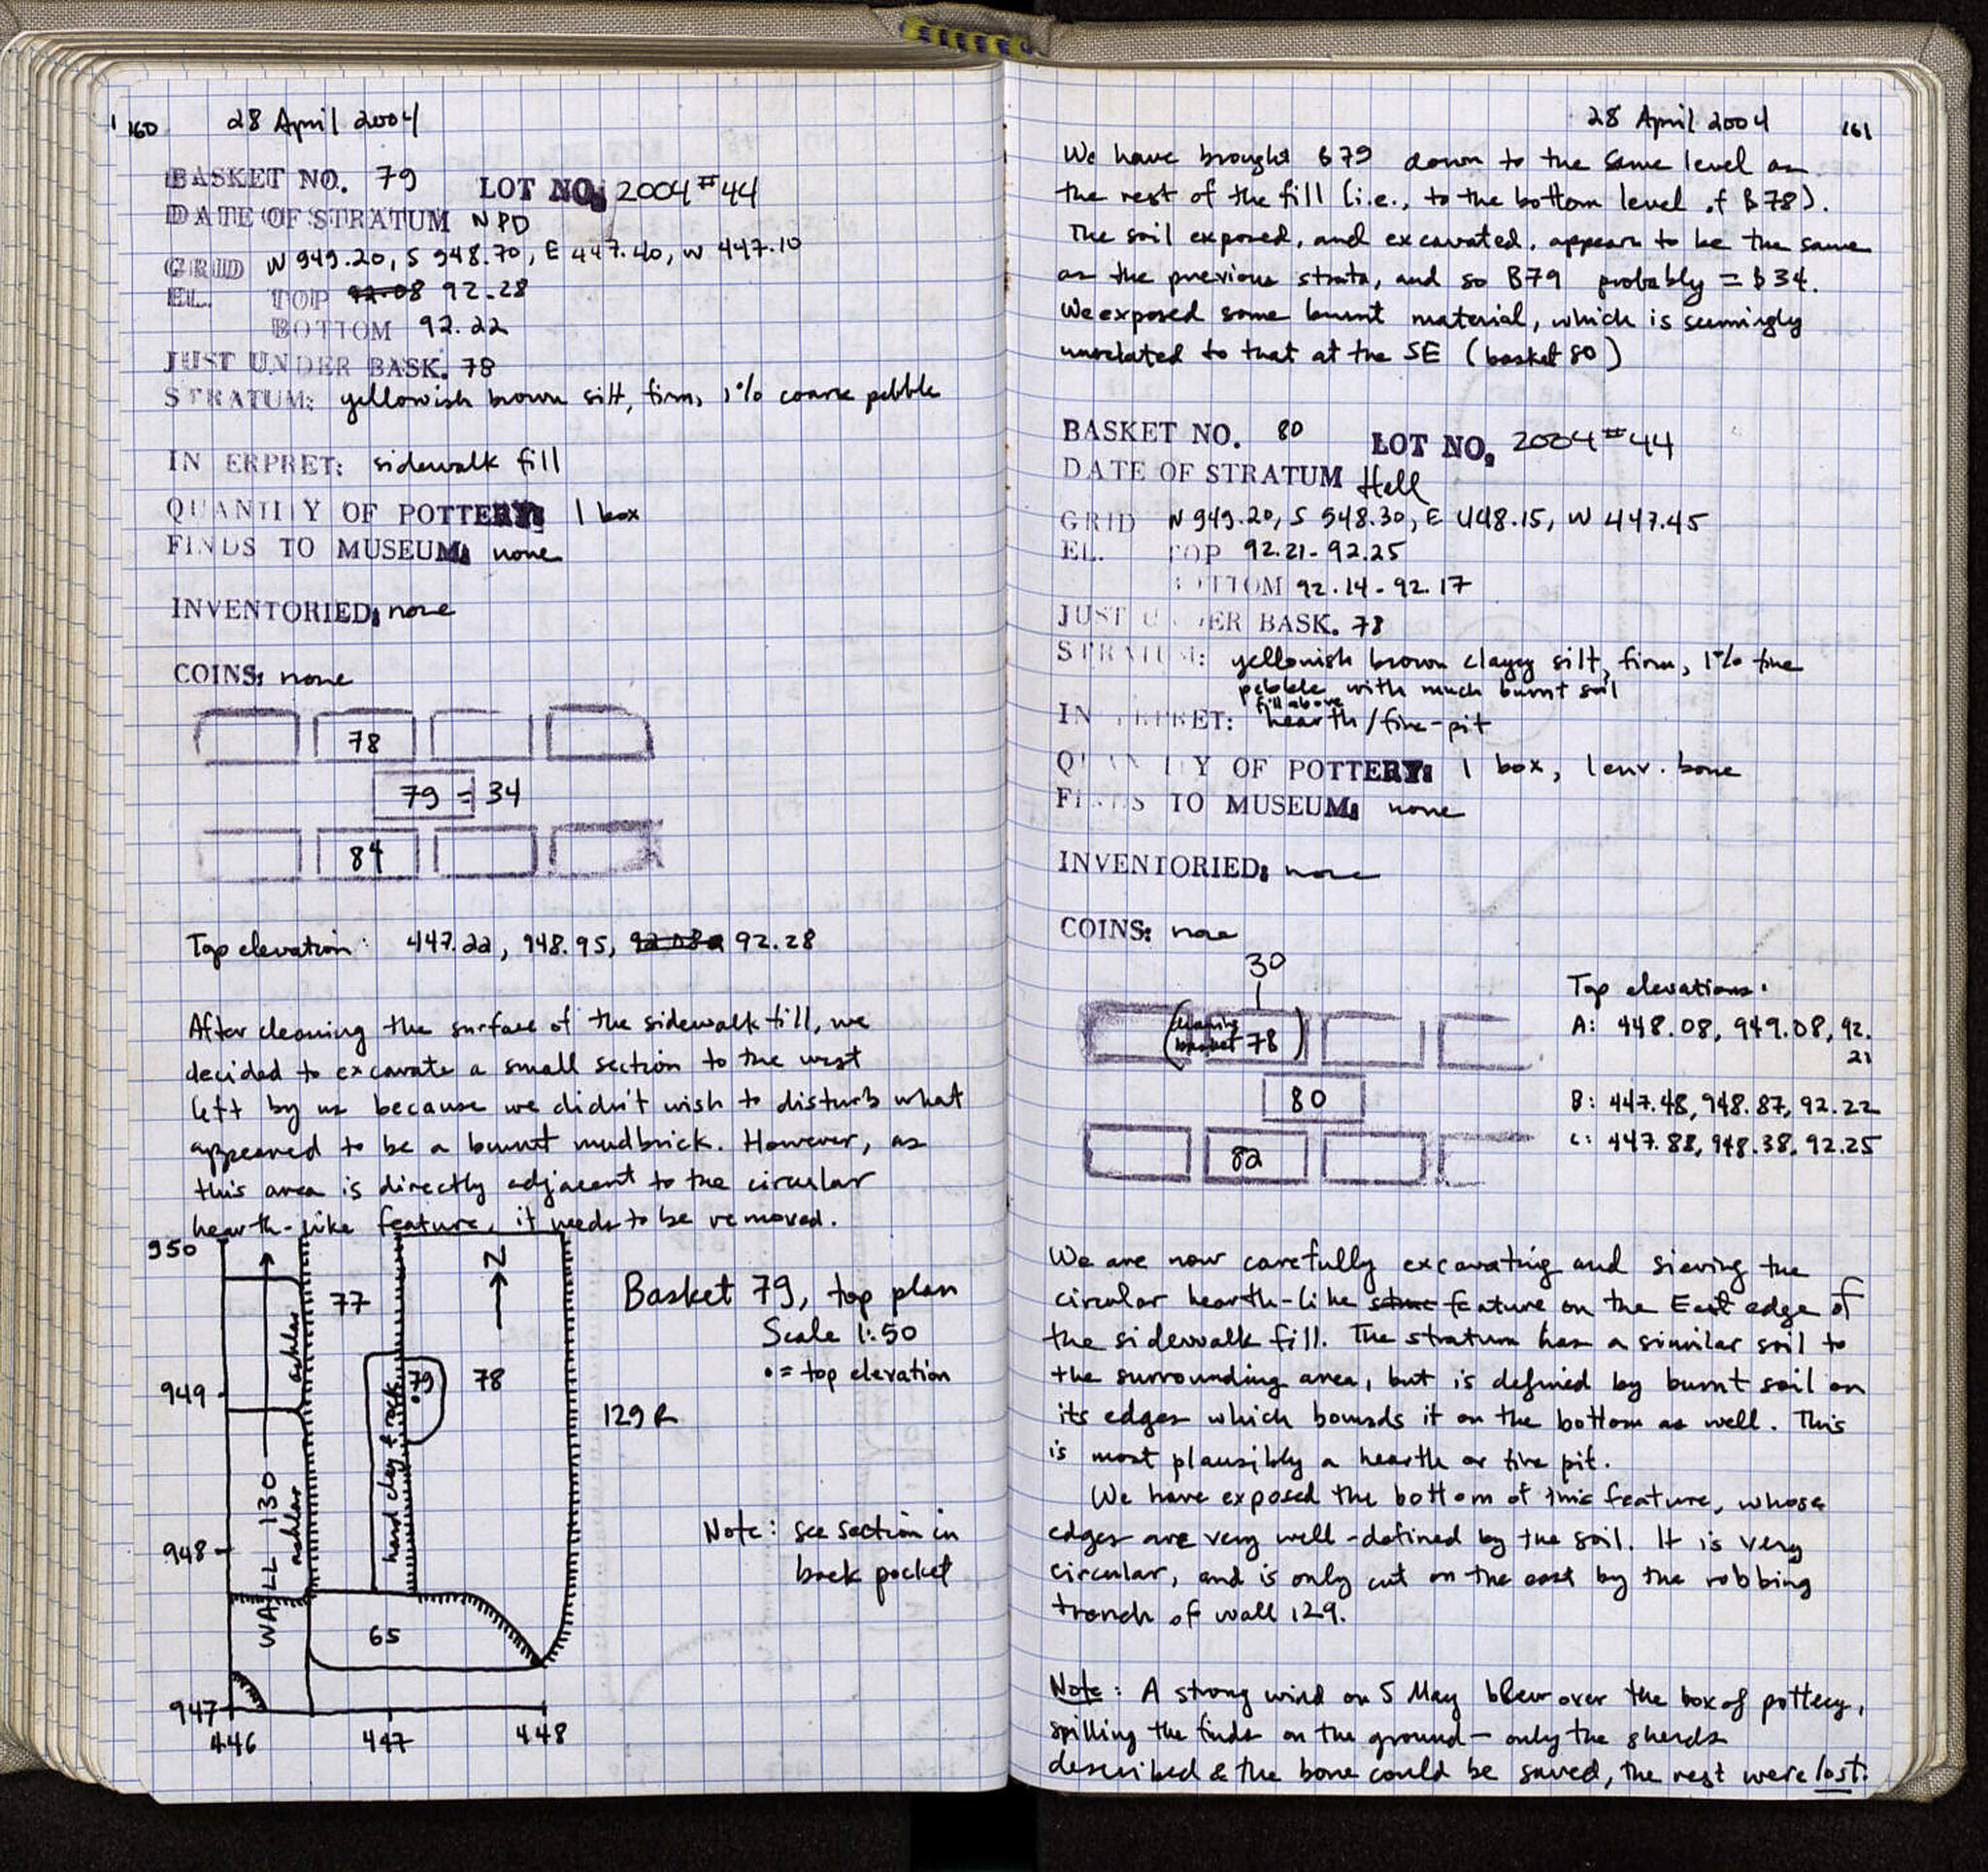 160
28 April 2004
BASKET NO. 79 LOT NO. 2004 #44
DATE OF STRATUM NPD
GRID N 949.20, S 948.70, E 447.40, W 447.10
EL. TOP 92.08 92.28
BOTTOM 92.22
JUST UNDER BASK. 78
STRATUM: yellowish brown silt, firm, 1% coarse pebble
IN ERPRET: sidewalk fill
QUANTITY OF POTTERY: 1 box
FINDS TO MUSEUM: none
INVENTORIED: none
COINS: none
78
79 = 34
84
Top elevation: 447.22, 948.95, 92.28
After cleaning the surface of the sidewalk fill, we
decided to excavate a small section to the west
left by us because we didn't wish to disturb what
appeared to be a burnt mudbrick. However, as
this area is directly adjacent to the circular
hearth-like feature, it needs to be removed.
950
N
77
Basket 79, top plan
Scale 1:50
• = top elevation
ashlar
949
79
78
129 R
hard clay & rock
WALL 130
ashlar
Note: see section in
back pocket
948
65
947
446
447
448
28 April 2004
161
We have brought B79 down to the same level as
the rest of the fill (i.e., to the bottom level of B78).
The soil exposed, and excavated, appears to be the same
as the previous strata, and so B79 probably = B34.
We exposed some burnt material, which is seemingly
unrelated to that at the SE (basket 80)
BASKET NO. 80 LOT NO. 2004 #44
DATE OF STRATUM Hell
GRID N 949.20, S 948.30, E 448.15, W 447.45
EL. TOP 92.21-92.25
BOTTOM 92.14-92.17
JUST UNDER BASK. 78
STRATUM: yellowish brown clayey silt, firm, 1% fine
pebble with much burnt soil
fill above
INTERPRET: hearth/fire-pit
QUANTITY OF POTTERY: 1 box, 1 env. bone
FINDS TO MUSEUM: none
INVENTORIED: none
COINS: none
30
(cleaning
basket 78)
80
82
Top elevations:
A: 448.08, 949.08, 92.
21
B: 447.48, 948.87, 92.22
C: 447.88, 948.38, 92.25
We are now carefully excavating and sieving the
circular hearth-like struc feature on the East edge of
the sidewalk fill. The stratum has a similar soil to
the surrounding area, but is defined by burnt soil on
its edges which bounds it on the bottom as well. This
is most plausibly a hearth or fire pit.
We have exposed the bottom of this feature, whose
edges are very well-defined by the soil. It is very
circular, and is only cut on the east by the robbing
trench of wall 129.
Note: A strong wind on 5 May blew over the box of pottery,
spilling the finds on the ground - only the sherds
described & the bone could be saved, the rest were lost.